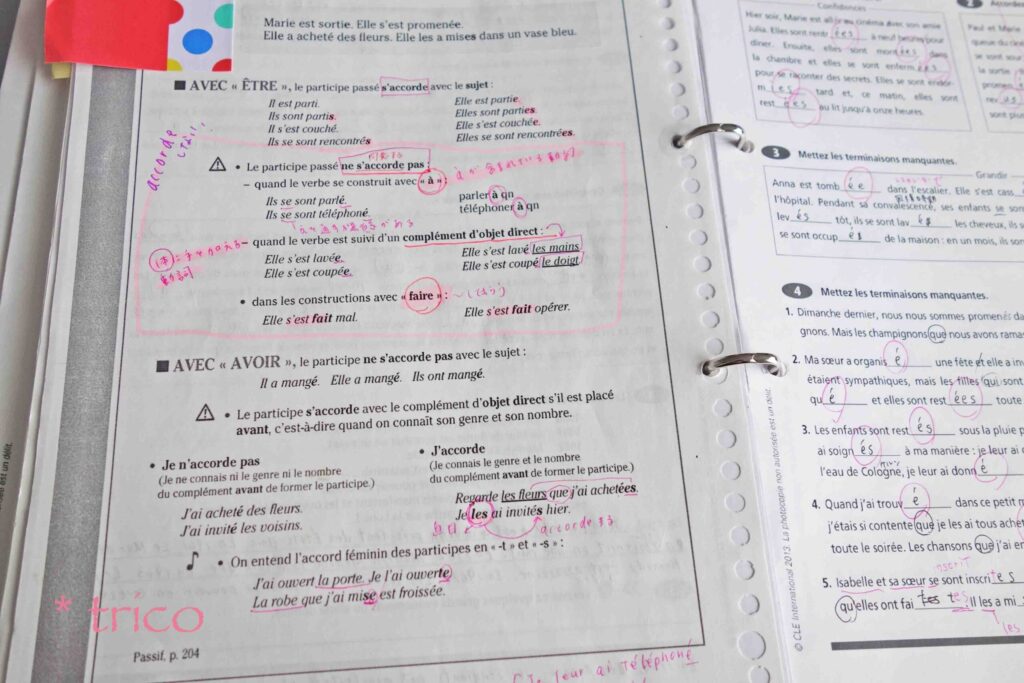 Marie est sortie. Elle s'est promenée.
Elle a acheté des fleurs. Elle les a mises dans un vase bleu.
■ AVEC « ÊTRE », le participe passé s'accorde avec le sujet :
Il est parti. Elle est partie.
Ils sont partis. Elles sont parties.
Il s'est couché. Elle s'est couchée.
Ils se sont rencontrés Elles se sont rencontrées.
accorde
• Le participe passé ne s'accorde pas :
– quand le verbe se construit avec « à » :
Ils se sont parlé. parler à qn
Ils se sont téléphoné. téléphoner à qn
– quand le verbe est suivi d'un complément d'objet direct :
Elle s'est lavée. Elle s'est lavé les mains
Elle s'est coupée. Elle s'est coupé le doigt
• dans les constructions avec « faire » :
Elle s'est fait mal. Elle s'est fait opérer.
■ AVEC « AVOIR », le participe ne s'accorde pas avec le sujet :
Il a mangé. Elle a mangé. Ils ont mangé.
• Le participe s'accorde avec le complément d'objet direct s'il est placé
avant, c'est-à-dire quand on connaît son genre et son nombre.
• Je n'accorde pas
(Je ne connais ni le genre ni le nombre
du complément avant de former le participe.)
J'ai acheté des fleurs.
J'ai invité les voisins.
• J'accorde
(Je connais le genre et le nombre
du complément avant de former le participe.)
Regarde les fleurs que j'ai achetées.
Je les ai invités hier.
accorde する
♪ • On entend l'accord féminin des participes en « -t » et « -s » :
J'ai ouvert la porte. Je l'ai ouverte
La robe que j'ai mise est froissée.
* trico
Passif, p. 204
Je leur ai téléphoné
Confidences
Hier soir, Marie est allée au cinéma avec son amie
Julia. Elles sont rentrées à neuf heures pour
dîner. Ensuite, elles sont montées dans
la chambre et elles se sont enfermées
pour se raconter des secrets. Elles se sont endor-
mies tard et, ce matin, elles sont
restées au lit jusqu'à onze heures.
2 Accordez
Paul et Marie
queue du ciné
se sont sour
la sortie
promen
sont plus
3 Mettez les terminaisons manquantes.
Grandir
Anna est tombée dans l'escalier. Elle s'est cass
l'hôpital. Pendant sa convalescence, ses enfants se sont
levés tôt, ils se sont lavés les cheveux, ils
se sont occupés de la maison : en un mois, ils son
4 Mettez les terminaisons manquantes.
1. Dimanche dernier, nous nous sommes promenés da
gnons. Mais les champignons que nous avons rama
2. Ma sœur a organisé une fête et elle a in
étaient sympathiques, mais les filles qui sont
qué et elles sont restées toute
3. Les enfants sont restés sous la pluie p
ai soignés à ma manière : je leur ai
l'eau de Cologne, je leur ai donné
4. Quand j'ai trouvé dans ce petit m
j'étais si contente que je les ai tous achet
toute le soirée. Les chansons que j'ai en
5. Isabelle et sa sœur se sont inscrites
qu'elles ont fai tes Il les a mi
© CLE International 2013. La photocopie non autorisée est un délit.